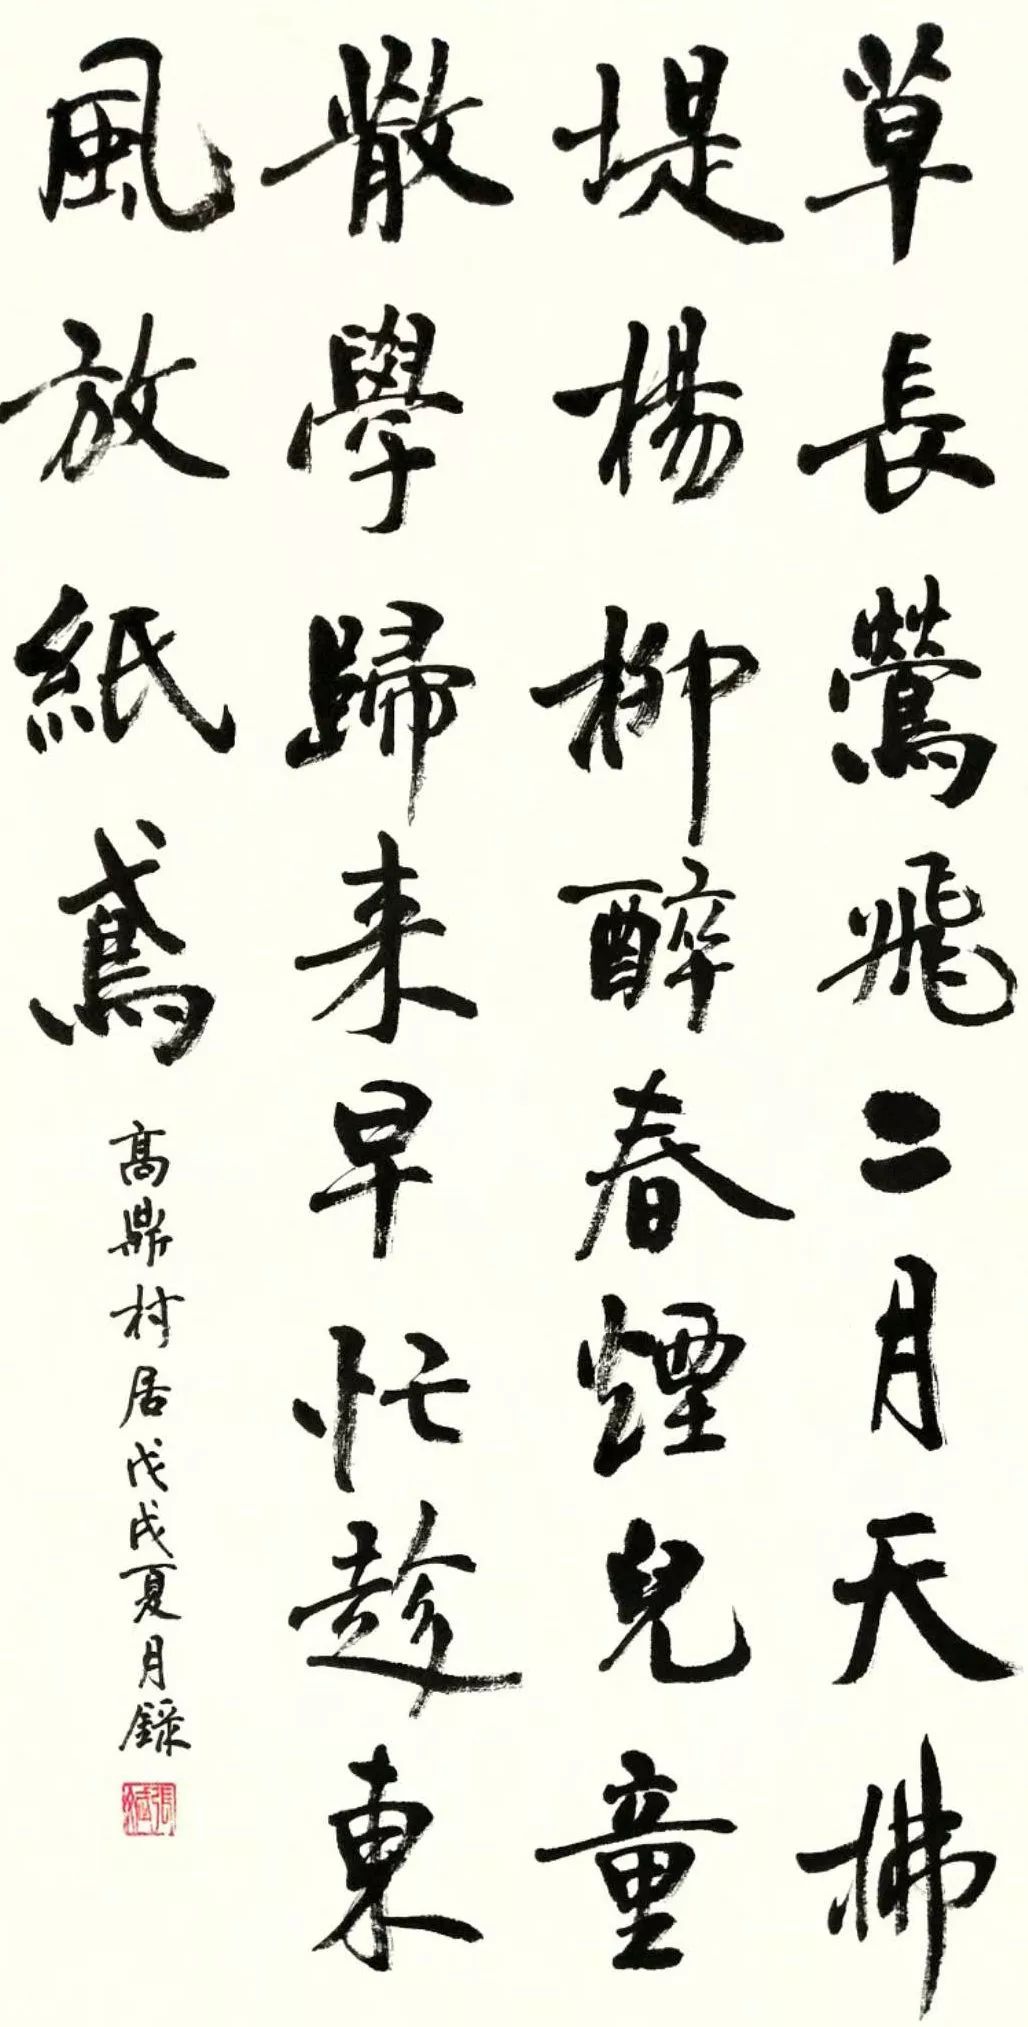 草長鶯飛二月天拂
堤楊柳醉春煙兒童
散學歸来早忙趁東
風放紙鳶
高鼎村居戊戌夏月錄